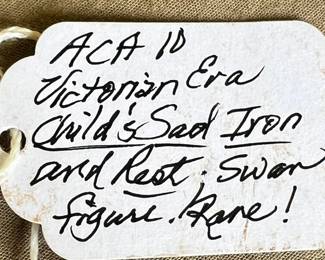 ACA 10
Victorian Era
Child's Sad Iron
and Rest. Swan
figure. Rare!